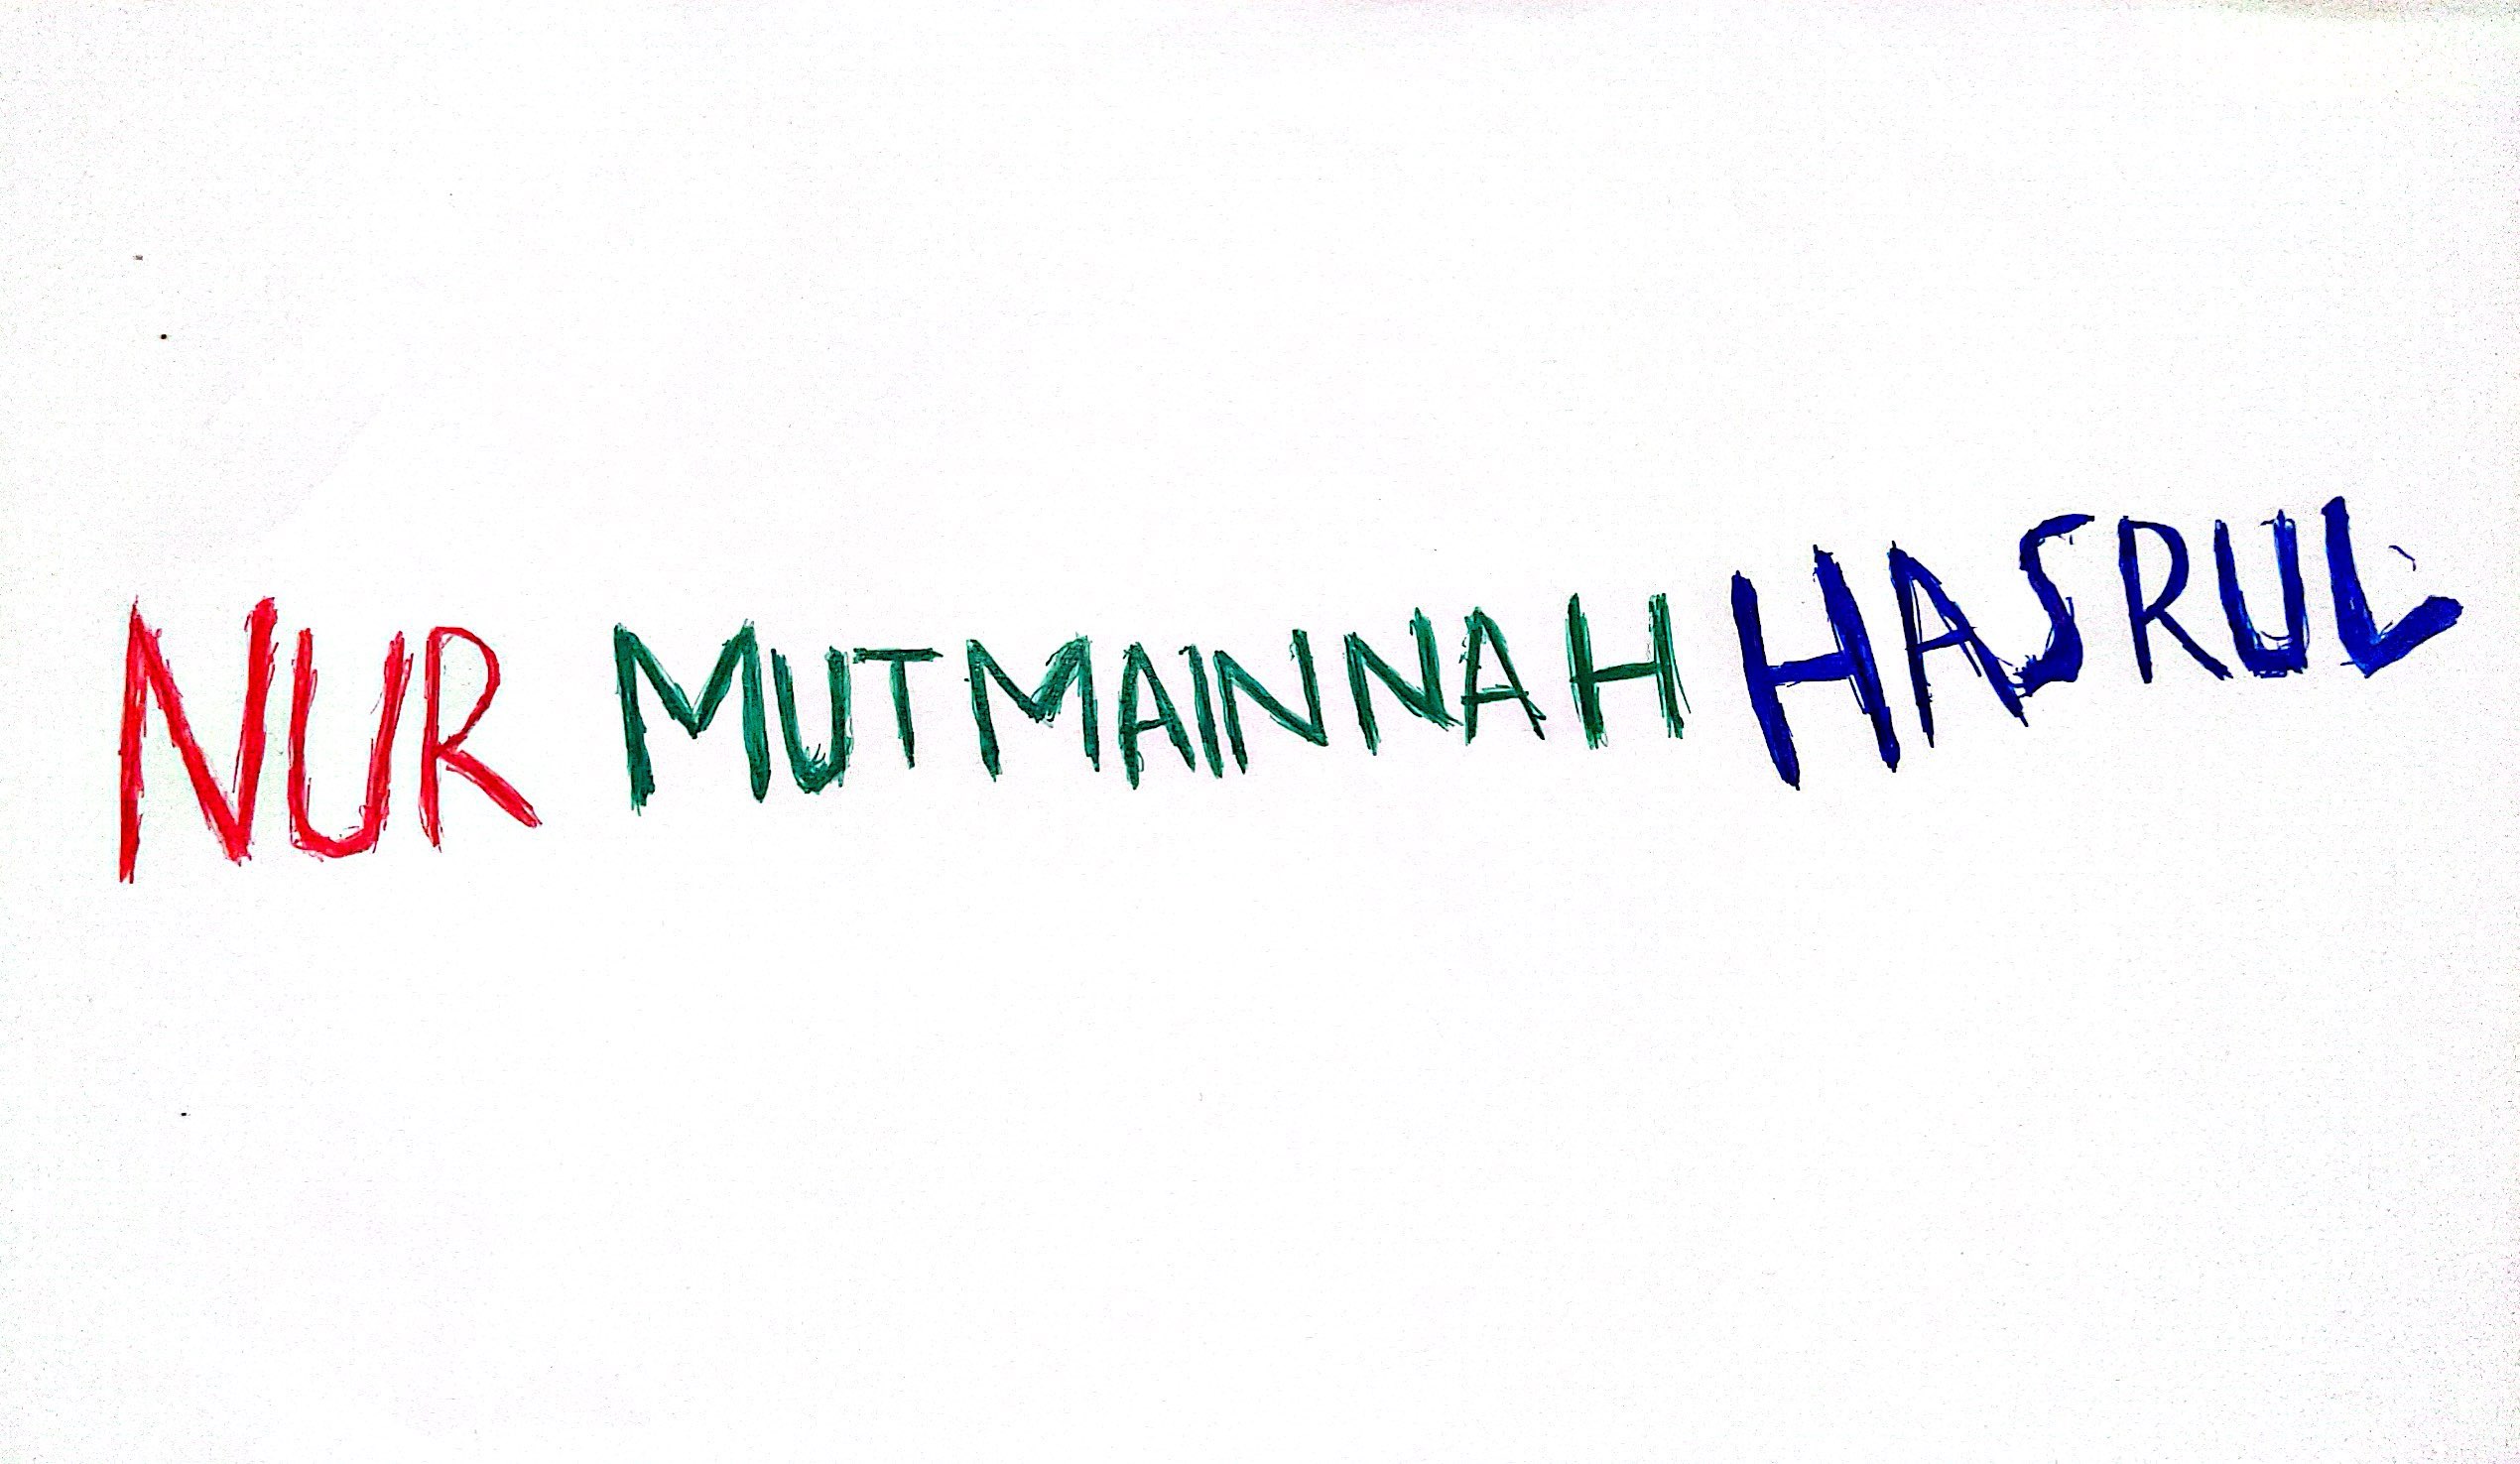 NUR MUTMAINNAH HASRUL